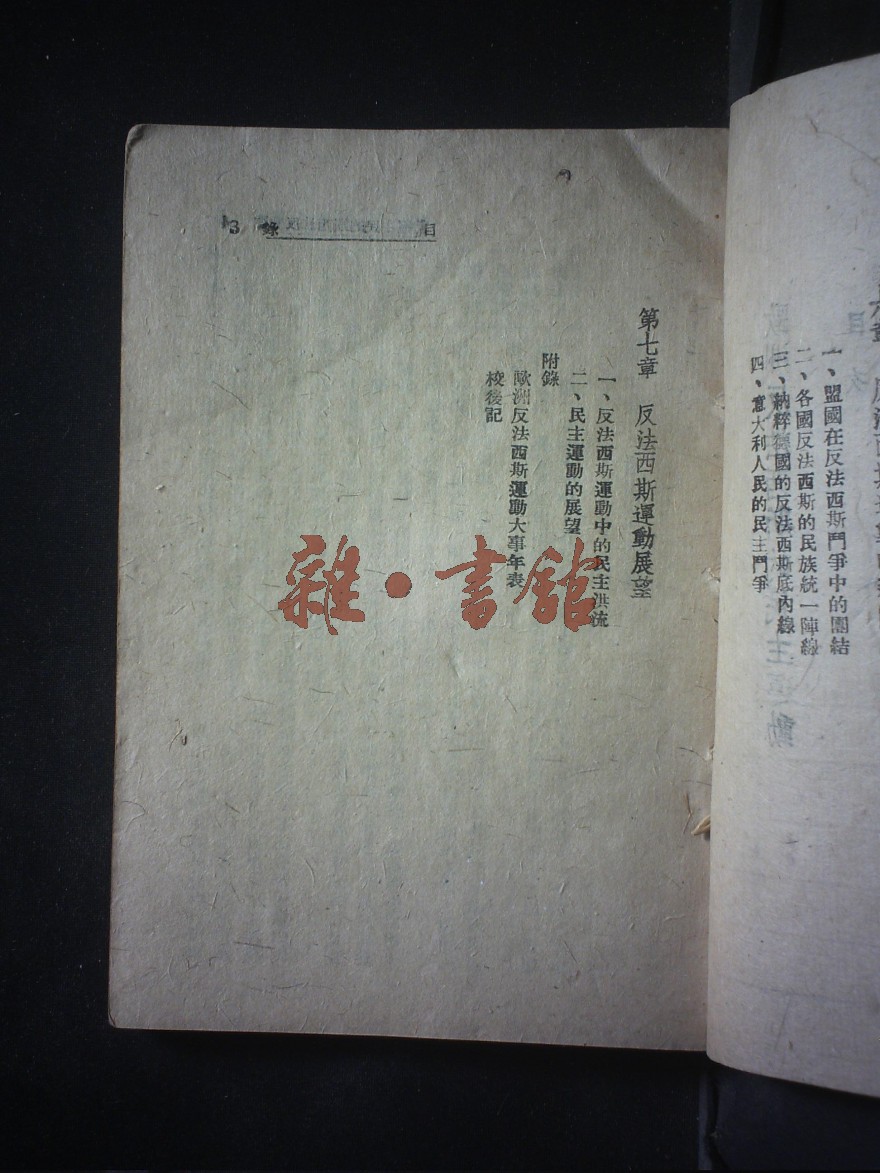 一、盟國在反法西斯鬥爭中的團結
二、各國反法西斯的民族統一陣線
三、納粹德國的反法西斯底內線
四、意大利人民的民主鬥爭
目錄 3
第七章 反法西斯運動展望
一、反法西斯運動中的民主洪流
二、民主運動的展望
附錄
歐洲反法西斯運動大事年表
校後記
雜·書館